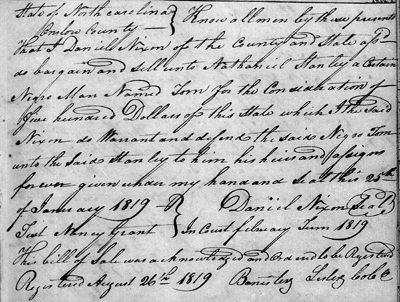 State of North carolina } Know all men by these presents
Onslow County
That I Daniel Nixon of the County and State afsd
do bargain and sell unto Nathaniel Stanley a Certain
Negro Man Named Tom for the Consideration of
five hundred Dollars of this State which I the Said
Nixon do Warrant and defend the said Negro Tom
unto the Said Stanley to him his heirs and assigns
forever given under my hand and Seal this 25th
of January 1819 } Daniel Nixon Seal
Test Nancy Grant } In Court february Term 1819
This bill of Sale was acknowledged and Ordered to be Registered
Registered August 26th 1819